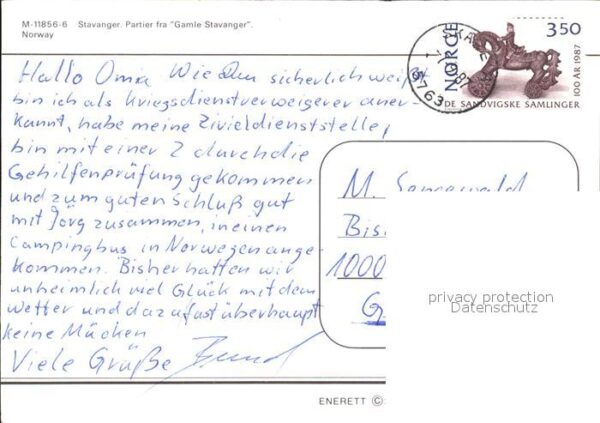 M-11856-6 Stavanger. Partier fra "Gamle Stavanger".
Norway
Hallo Oma Wie Du sicherlich weißt
bin ich als Kriegsdienstverweigerer aner-
kannt, habe meine Zivieldienststelle,
bin mit einer 2 durch die
Gehilfenprüfung gekommen
und zum guten Schluß gut
mit Jörg zusammen, in einen
Campingbus in Norwegen ange-
kommen. Bisher hatten wir
unheimlich viel Glück mit dem
Wetter und dazu fast überhaupt
keine Mücken
Viele Grüße
NORGE
350
100 ÅR 1987
DE SANDVIGSKE SAMLINGER
5763
M.
Bis
1000
G
privacy protection
Datenschutz
ENERETT ©